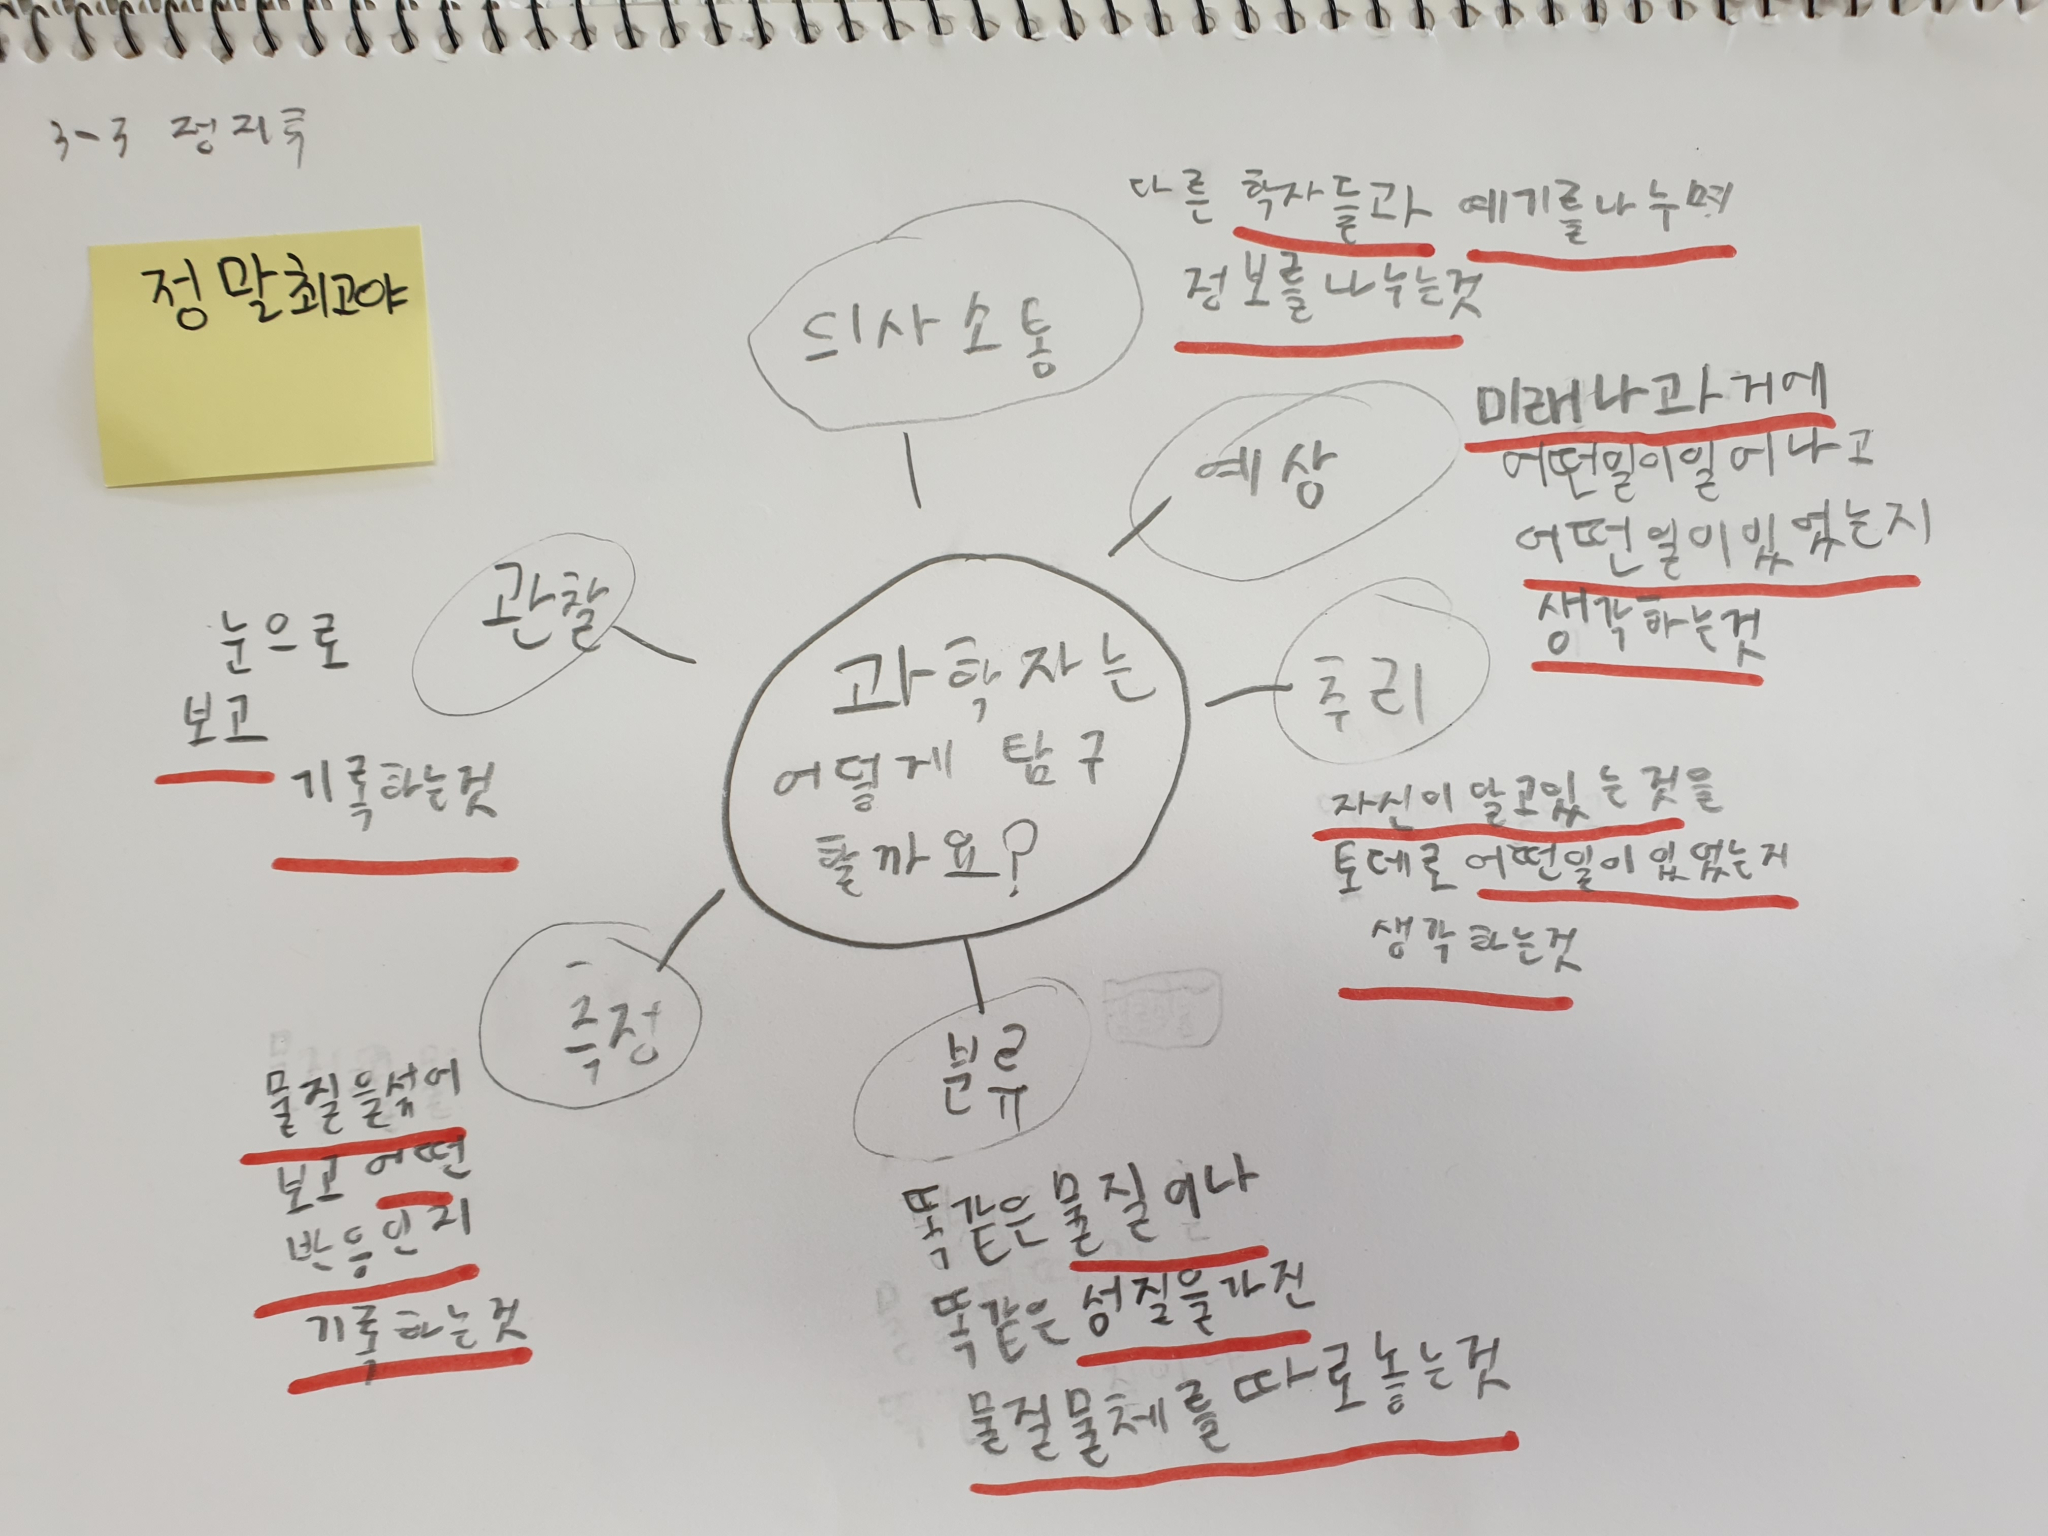 3-3 정지훅
정말최고야
의사소통
다른 학자들과 예기를나누며
정보를나누는것
예상
미래나과거에
어떤일이일어나고
어떤일이있었는지
생각하는것
추리
자신이알고있는것을
토데로어떤일이있었는지
생각하는것
관찰
눈으로
보고
기록하는것
과학자는
어떻게 탐구
할까요?
측정
물질을섞어
보고 어떤
반응인지
기록하는것
분류
똑같은물질이나
똑같은성질을가진
물질물체를따로놓는것